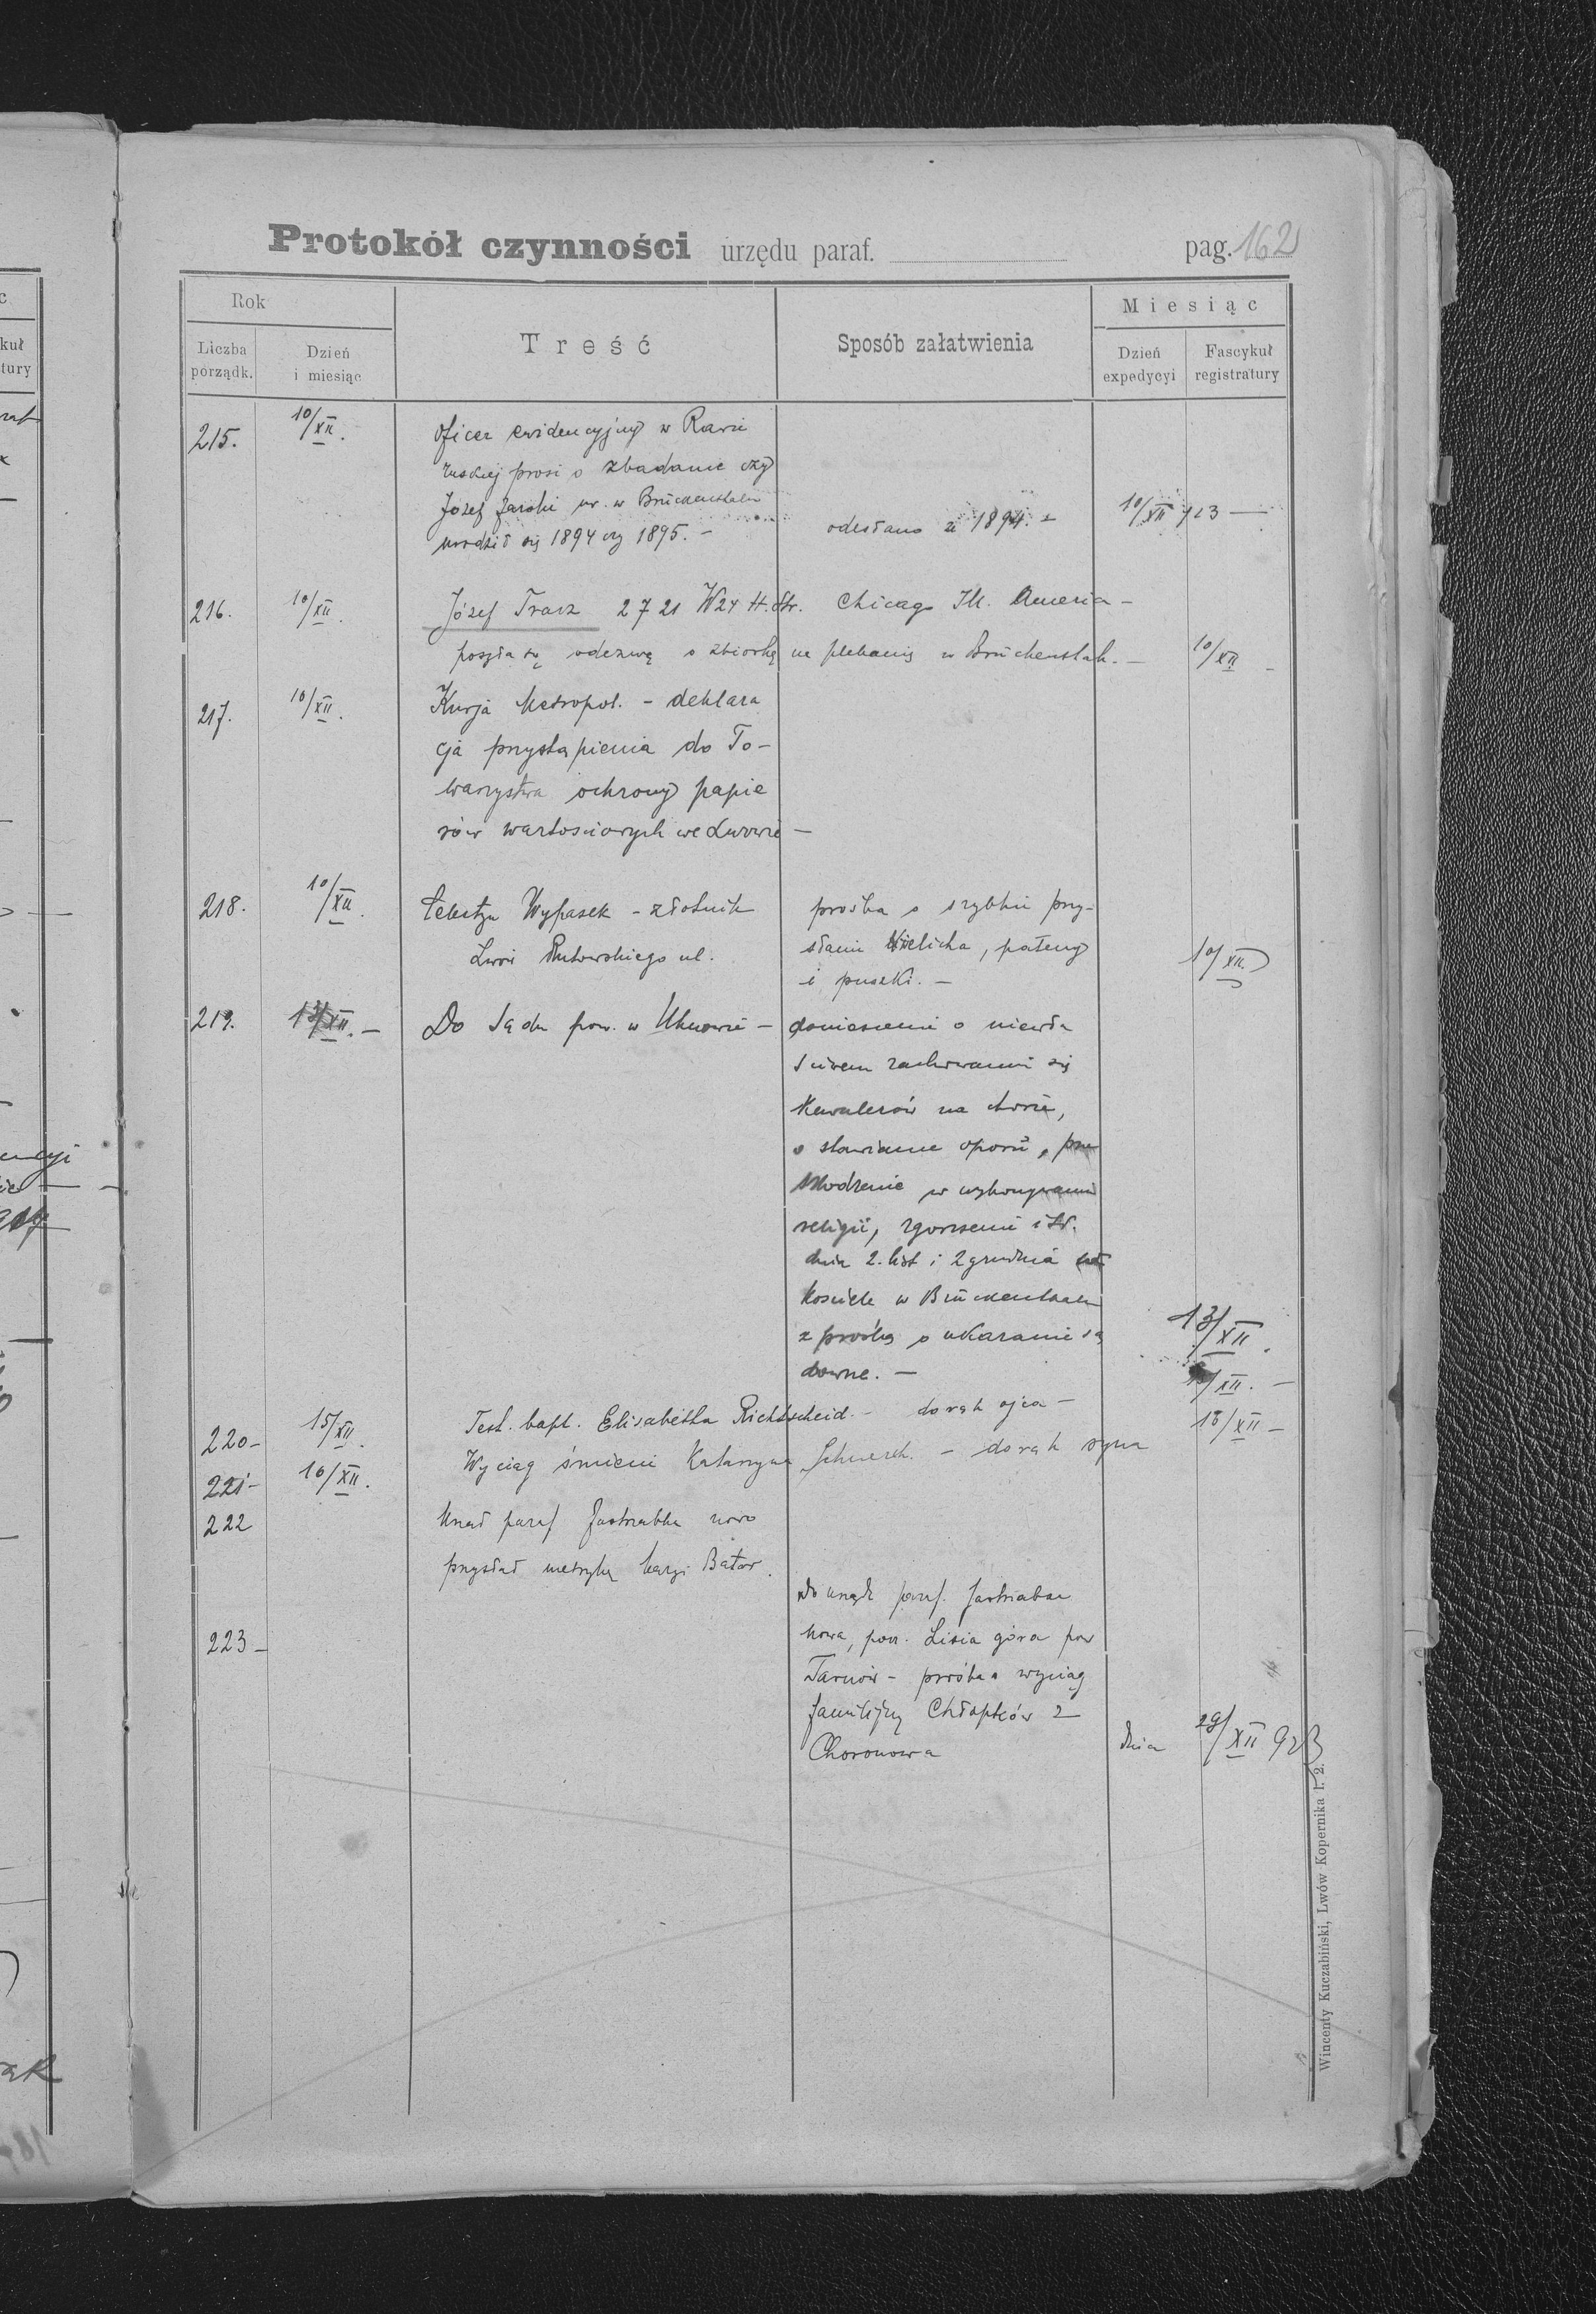 Protokół czynności urzędu paraf. pag. 162
Rok
Liczba porządk.
Dzień i miesiąc
Treść
Sposób załatwienia
Miesiąc
Dzień expedycyi
Fascykuł registratury
215. 10/XII. Oficer ewidencyjny w Rawie
ruskiej prosi o zbadanie czy
Józef Jarski ur. w Brückenthalu
urodził się 1894 czy 1895. – odesłano że 1894. – 10/XII 923 —
216. 10/XII. Józef Tracz 2721 W 24 H. Str. Chicago Ill. America –
poszła odezwę o zbiorkę na plebanię w Brückenthalu. – 10/XII –
217. 10/XII. Kurja Metropol. – deklara
cja przystąpienia do To-
warzystwa ochrony papie
rów wartościowych we Lwowie –
218. 10/XII. Wypasek – złotnik prośba o szybkie przy-
Lwów Rutowskiego ul. słanie kielicha, pateny
i puszki. – 10/XII.
219. 13/XII. – Do Sądu pow. w Uhnowie – doniesienie o niewła
ściwem zachowaniu się
kawalerów na chórze,
o stawianie oporu, prze
szkodzenie w wykonywaniu
religii, zgorszenie itd.
dnia 2. list i 2 grudnia
kościele w Brückenthalu
z prośbą o ukaranie są
downe. – 13/XII.
/XII. –
220 – 15/XII. Test. bapt. Elisabetha Richtscheid. – do rąk ojca – 18/XII –
221 – 16/XII. Wyciąg śmierci Katarzyna – do rąk syna
222 Urząd paraf Jastrząbka nowa
przysłał metrykę Bator.
223 – Do urzęd. paraf. Jastrząbka
Nowa, pocz. Lisia góra pow
Tarnów – prośba o wyciąg
familijny Chłopków z
Choronowa dnia 29/XII 923
Wincenty Kuczabiński, Lwów Kopernika l. 2.
c
kuł
tury